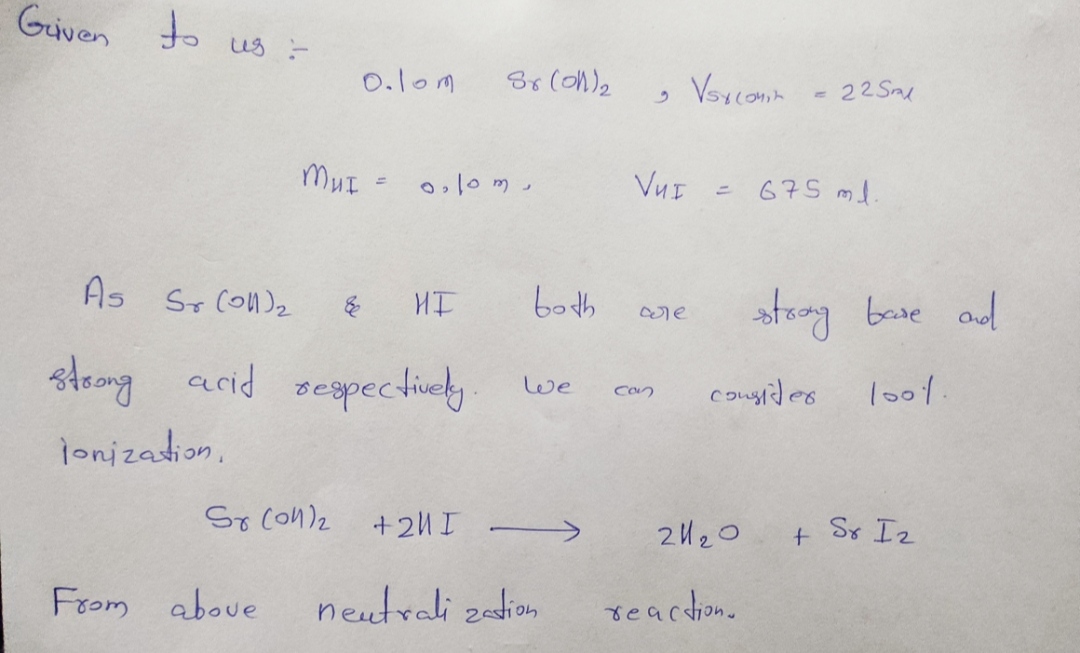 Given to us :-
0.10m Sr(OH)2 , VSr(OH)2 = 225ml
MHI = 0.10 m, VHI = 675 ml.
As Sr(OH)2 & HI both are strong base and
strong acid respectively. We can consider 100%
ionization.
Sr(OH)2 + 2HI ⟶ 2H2O + SrI2
From above neutralization reaction.